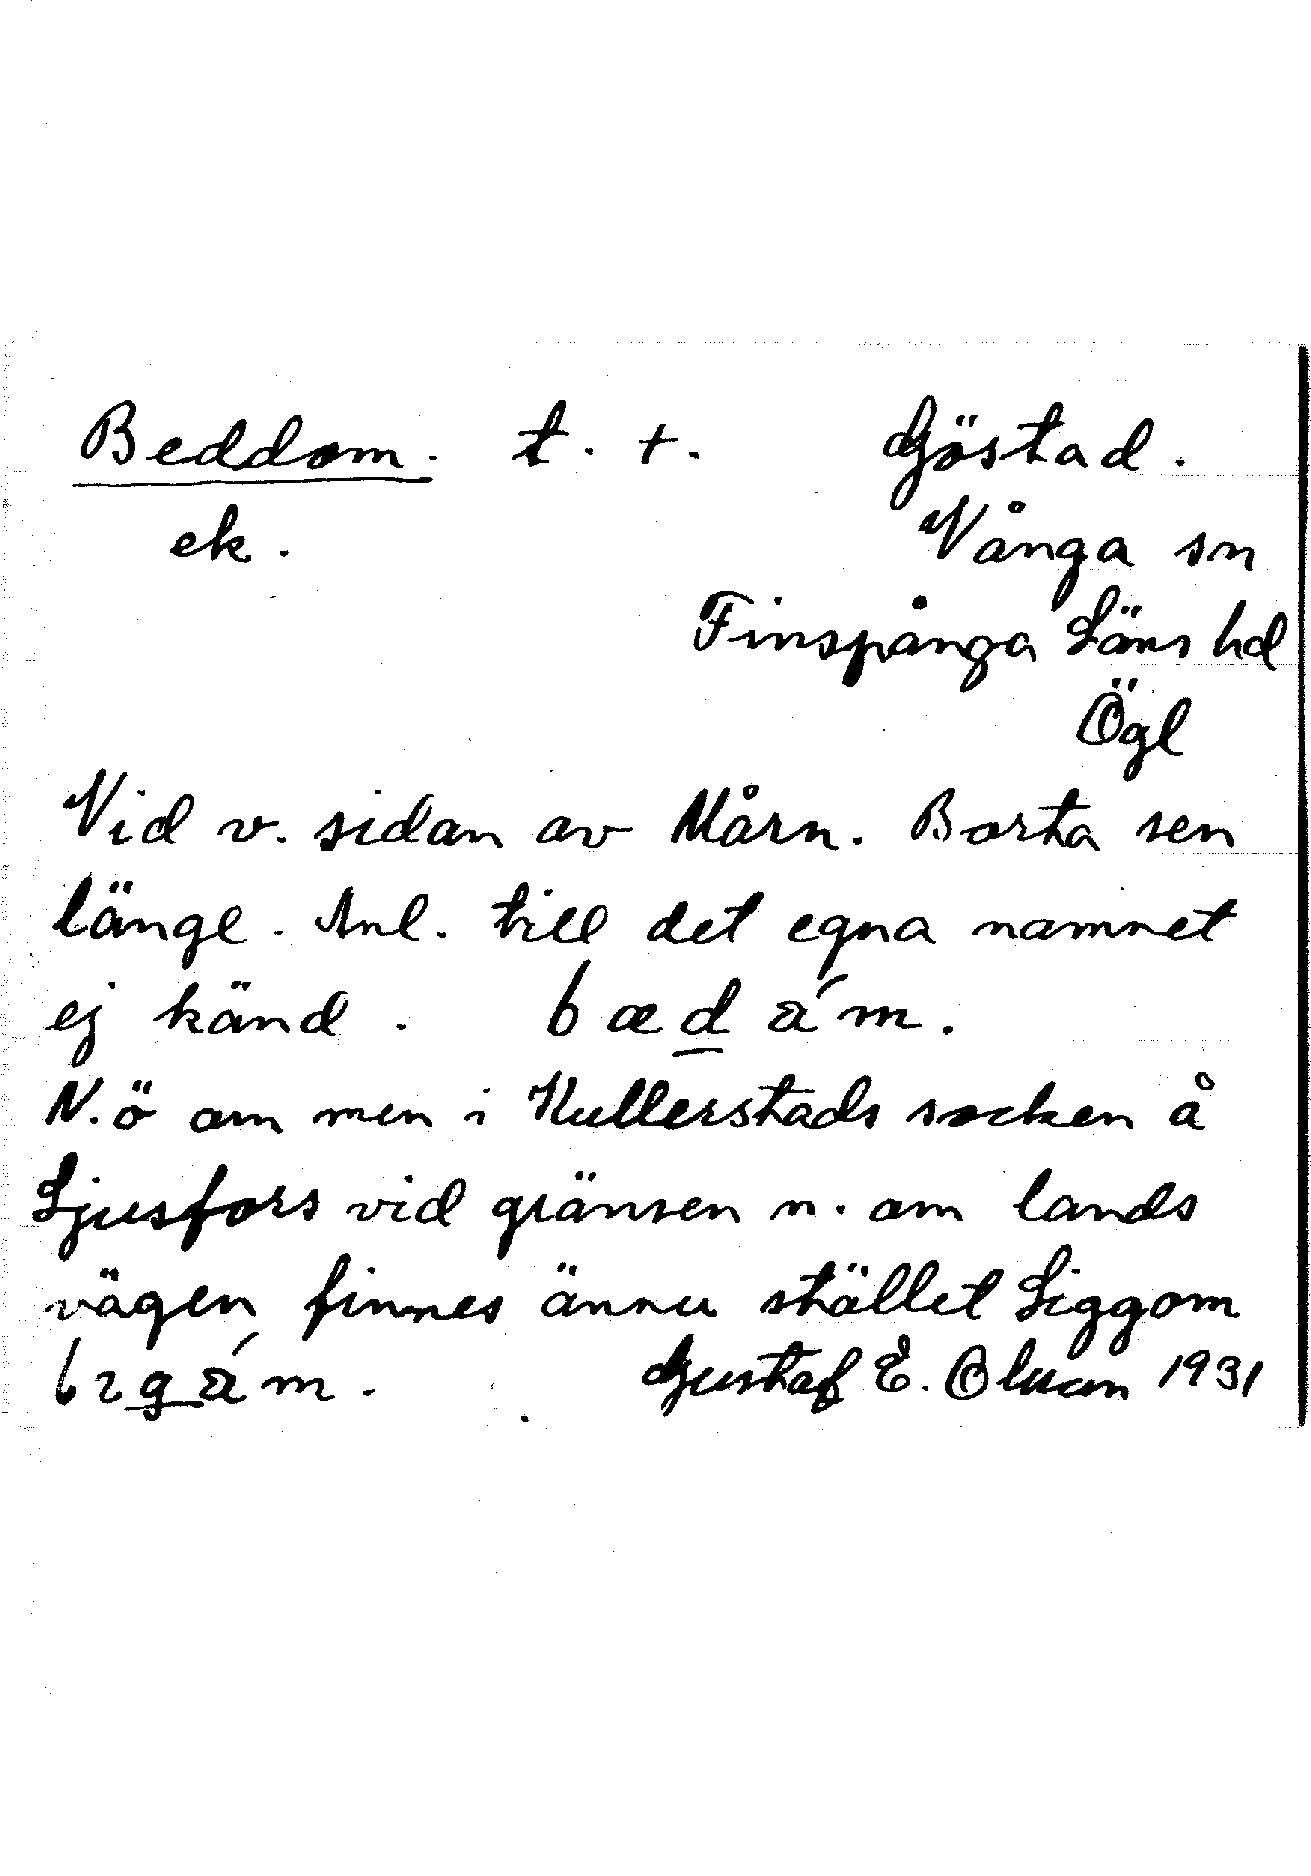 Beddom. t. +. Göstad.
ek. Vånga sn
Finspånga Läns hd
Ögl
Vid v. sidan av Mårn. Borta sen
länge. Anl. till det egna namnet
ej känd. bædåm.
N. ö om men i Kullerstads socken å
Ljusfors vid gränsen n. om lands
vägen finnes ännu stället Liggom
Gustaf E. Olsson 1931